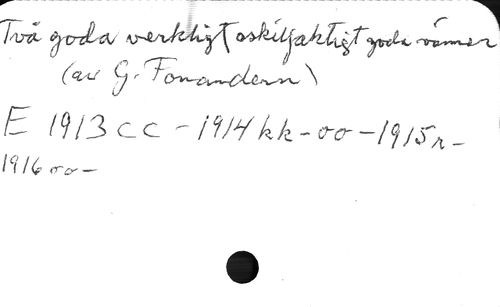 Två goda verkligt oskiljaktigt goda vänner
(av G. Fonandern)
E 1913 cc - 1914 kk - oo - 1915 r -
1916 oo -